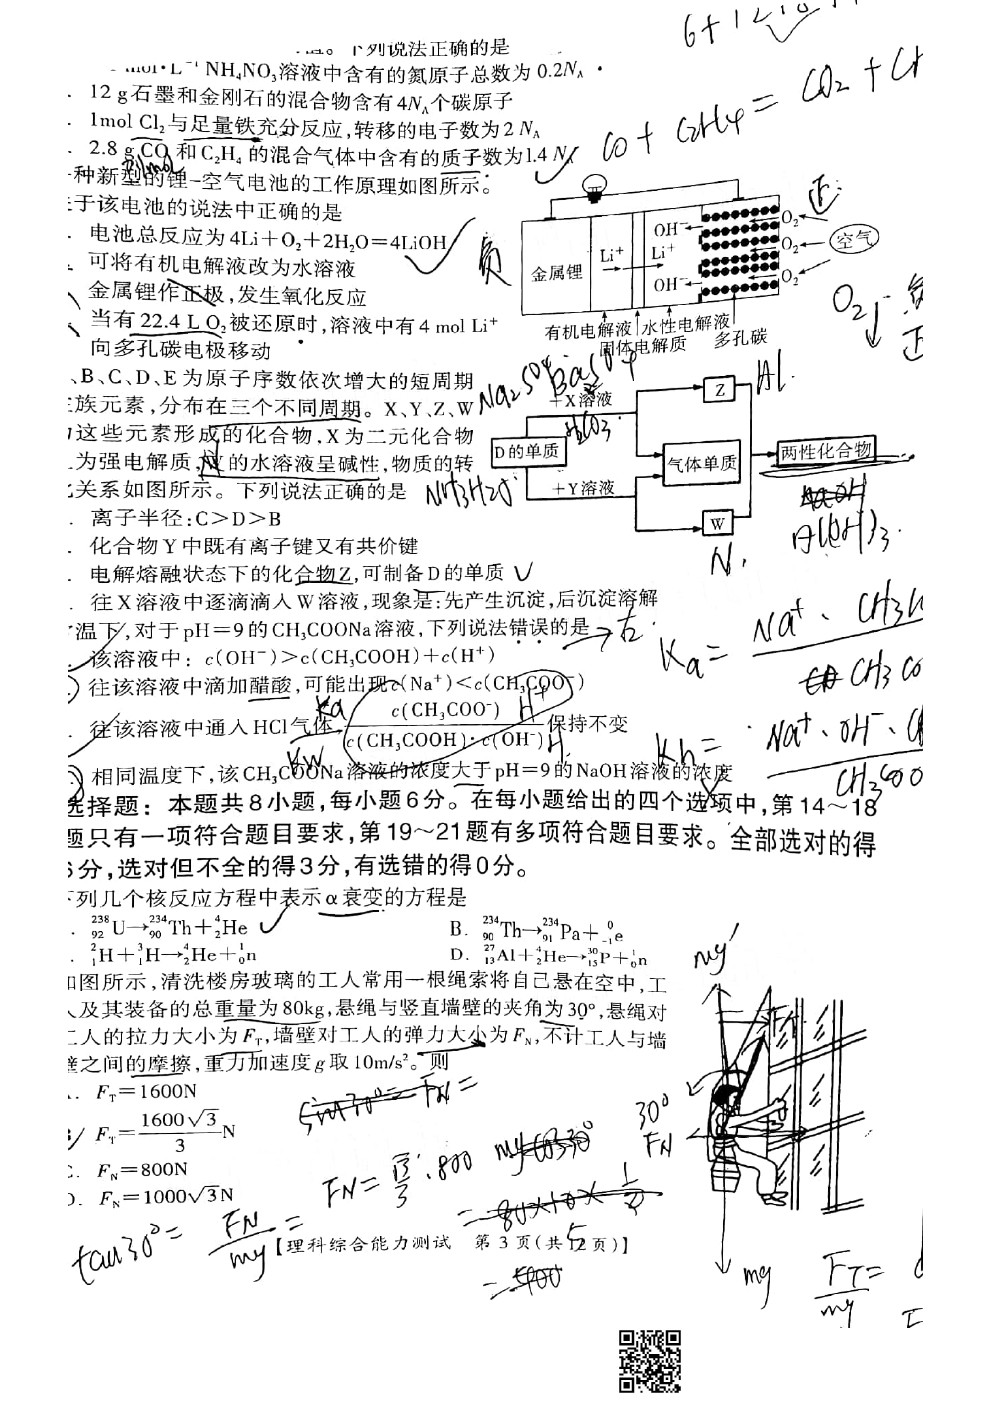 下列说法正确的是
NH₄NO₃溶液中含有的氮原子总数为 0.2Nₐ
12 g石墨和金刚石的混合物含有4Nₐ个碳原子
1mol Cl₂与足量铁充分反应,转移的电子数为2 Nₐ
2.8 g CO 和C₂H₄ 的混合气体中含有的质子数为1.4 Nₐ
CO + C₂H₄ = CO₂ +
种新型的锂-空气电池的工作原理如图所示。
于该电池的说法中正确的是
电池总反应为4Li+O₂+2H₂O=4LiOH
可将有机电解液改为水溶液
金属锂作正极,发生氧化反应
当有 22.4 L O₂被还原时,溶液中有 4 mol Li⁺
向多孔碳电极移动
负
正
金属锂
Li⁺
OH⁻
Li⁺
OH⁻
O₂
O₂
O₂
空气
有机电解液
水性电解液
固体电解质
多孔碳
O₂↓
、B、C、D、E 为原子序数依次增大的短周期
族元素,分布在三个不同周期。X、Y、Z、W
这些元素形成的化合物,X 为二元化合物
为强电解质,W 的水溶液呈碱性,物质的转
关系如图所示。下列说法正确的是
Na₂SO₄
BaSO₄
Al
+X溶液
Z
D的单质
气体单质
两性化合物
+Y溶液
W
NH₃H₂O
NaOH
Al(OH)₃
N
离子半径:C>D>B
化合物 Y 中既有离子键又有共价键
电解熔融状态下的化合物Z,可制备D的单质
往 X 溶液中逐滴滴入 W 溶液,现象是:先产生沉淀,后沉淀溶解
温下,对于 pH=9 的 CH₃COONa 溶液,下列说法错误的是
→右
该溶液中: c(OH⁻)>c(CH₃COOH)+c(H⁺)
往该溶液中滴加醋酸,可能出现c(Na⁺)<c(CH₃COO⁻)
往该溶液中通入 HCl气体, c(CH₃COO⁻) / c(CH₃COOH)·c(OH⁻) 保持不变
Ka
Kw
H⁺
Ka =
Kh =
相同温度下,该CH₃COONa溶液的浓度大于pH=9的NaOH溶液的浓度
选择题：本题共8小题,每小题6分。在每小题给出的四个选项中,第14～18
题只有一项符合题目要求,第19～21题有多项符合题目要求。全部选对的得
6分,选对但不全的得3分,有选错的得0分。
下列几个核反应方程中表示α衰变的方程是
²³⁸₉₂U→²³⁴₉₀Th+⁴₂He
B. ²³⁴₉₀Th→²³⁴₉₁Pa+⁰₋₁e
²₁H+³₁H→⁴₂He+¹₀n
D. ²⁷₁₃Al+⁴₂He→³⁰₁₅P+¹₀n
如图所示,清洗楼房玻璃的工人常用一根绳索将自己悬在空中,工
人及其装备的总重量为80kg,悬绳与竖直墙壁的夹角为30°,悬绳对
工人的拉力大小为Fₜ,墙壁对工人的弹力大小为Fₙ,不计工人与墙
壁之间的摩擦,重力加速度g取10m/s²。则
Fₜ=1600N
Fₜ=1600√3/3 N
C. Fₙ=800N
D. Fₙ=1000√3N
sin30°= FN =
FN = √3/3 · 800
mg cos30°
tan30° = FN/mg =
mg′
FT
30°
FN
mg
FT/mg =
【理科综合能力测试　第 3 页(共12页)】